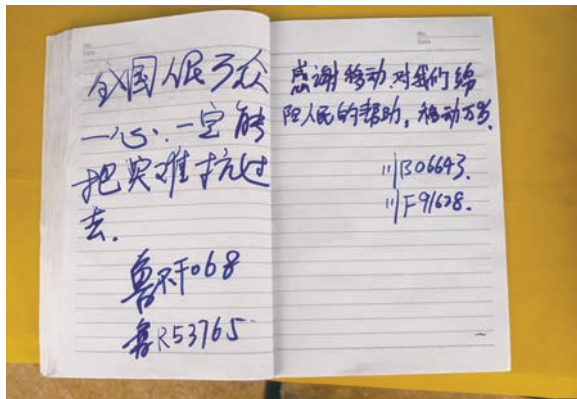 全国人民万众
一心.一定能
把灾难抗过
去.
068
鲁R53765
感谢移动.对我们绵
阳人民的帮助,移动万岁.
川B06643.
川F91628.